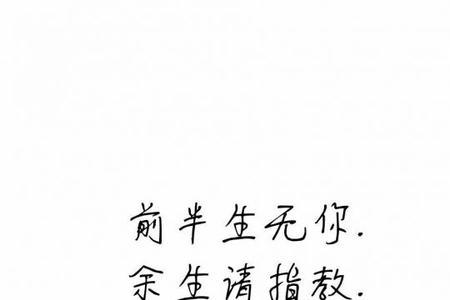 前半生无你.
余生请指教.